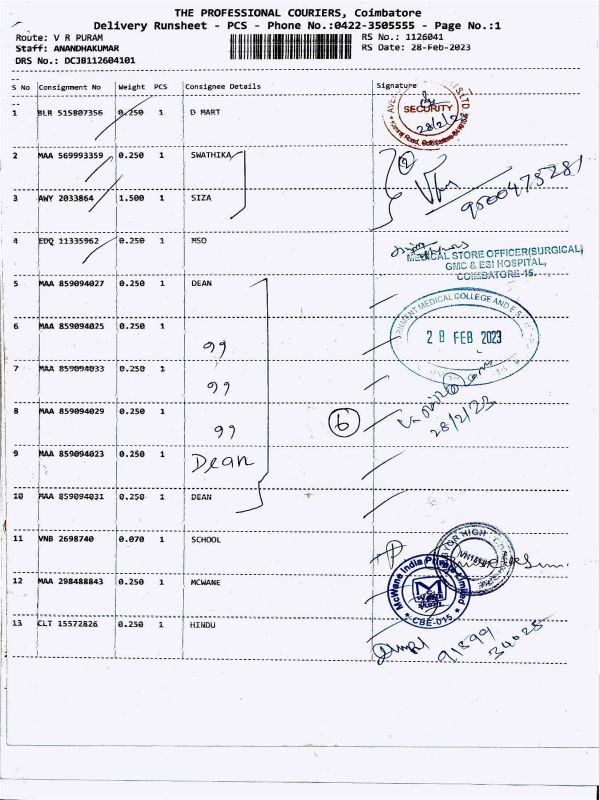 THE PROFESSIONAL COURIERS, Coimbatore
Delivery Runsheet - PCS - Phone No.:0422-3505555 - Page No.:1
Route: V R PURAM
RS No.: 1126041
Staff: ANANDHAKUMAR
RS Date: 28-Feb-2023
DRS No.: DCJB112604101
S No Consignment No Weight PCS Consignee Details Signature
1 BLR 515807356 0.250 1 D MART
SECURITY
28/2/23
2 MAA 569993359 0.250 1 SWATHIKA
2
3 AWY 2033864 1.500 1 SIZA
9500475281
4 EDQ 11335962 0.250 1 MSO
MEDICAL STORE OFFICER(SURGICAL)
GMC & ESI HOSPITAL,
COIMBATORE-15.
5 MAA 859094027 0.250 1 DEAN
6 MAA 859094025 0.250 1
28 FEB 2023
99
7 MAA 859094033 0.250 1
99
8 MAA 859094029 0.250 1
99
6
28/2/23
9 MAA 859094023 0.250 1 Dean
10 MAA 859094031 0.250 1 DEAN
11 VNB 2698740 0.070 1 SCHOOL
12 MAA 298488843 0.250 1 MCWANE
McWane India Private Limited
CBE-015
13 CLT 15572826 0.250 1 HINDU
91899
34025